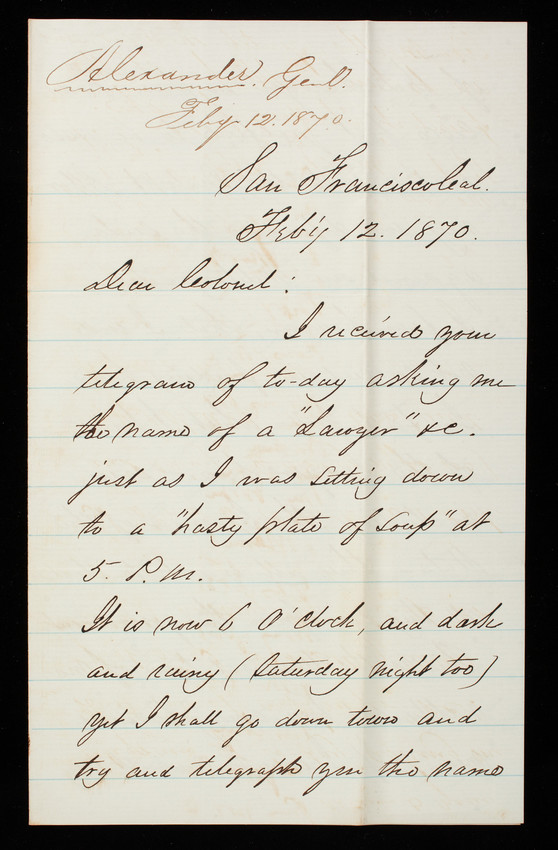 Alexander. Genl.
Feby 12. 1870.
San Francisco Cal.
Feb'y 12. 1870.
Dear Colonel:
I received your
telegram of to-day asking me
the name of a "Lawyer" &c.
just as I was sitting down
to a "hasty plate of soup" at
5. P.M.
It is now 6 O'Clock, and dark
and rainy (Saturday night too)
yet I shall go down town and
try and telegraph you the name